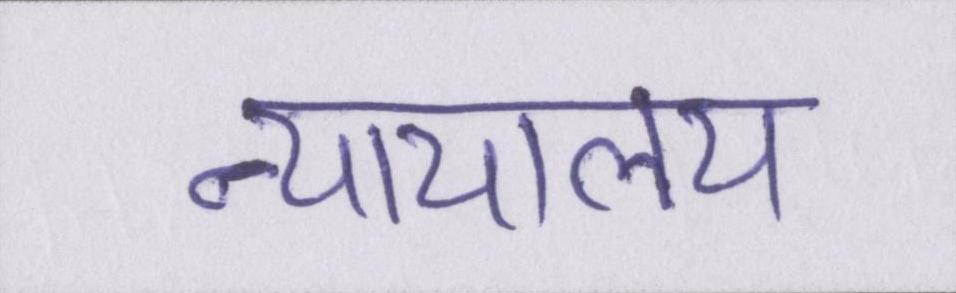 न्यायालय